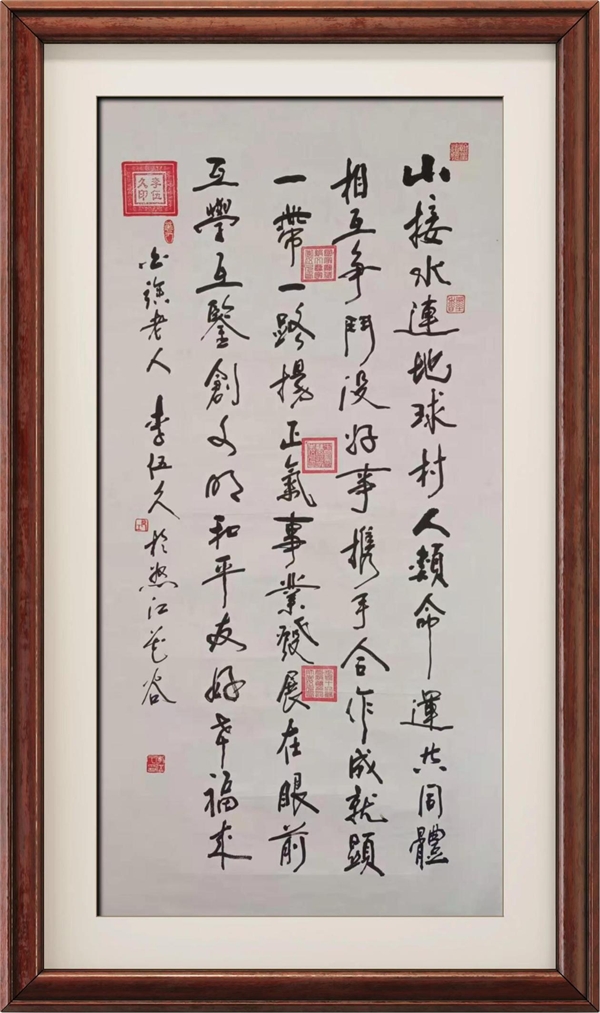 山接水連地球村人類命運共同體
相互爭鬥没好事携手合作成就顯
一帶一路揚正氣事業發展在眼前
互學互鑒創文明和平友好幸福來
老人 李伍久 於怒江花谷
李伍久印